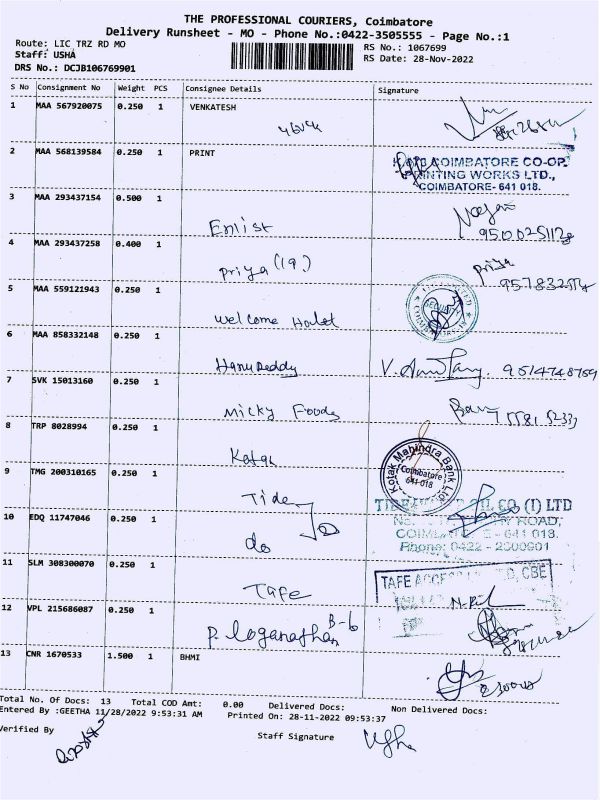 THE PROFESSIONAL COURIERS, Coimbatore
Delivery Runsheet - MO - Phone No.:0422-3505555 - Page No.:1
Route: LIC TRZ RD MO
RS No.: 1067699
Staff: USHA
RS Date: 28-Nov-2022
DRS No.: DCJB106769901
S No Consignment No Weight PCS Consignee Details Signature
1 MAA 567920075 0.250 1 VENKATESH
2 MAA 568139584 0.250 1 PRINT
COIMBATORE CO-OP.
PRINTING WORKS LTD.,
COIMBATORE- 641 018.
3 MAA 293437154 0.500 1
Enlist
4 MAA 293437258 0.400 1
Priya (19)
Priya
5 MAA 559121943 0.250 1
SECURITY
Welcome Hotel
6 MAA 858332148 0.250 1
Hanu Reddy
9514748759
7 SVK 15013160 0.250 1
Micky Foods
8 TRP 8028994 0.250 1
Kotak
Kotak Mahindra Bank Ltd
Coimbatore
641-018
9 TMG 200310165 0.250 1
Tide
OIL CO (I) LTD
ROAD,
641 018.
Phone: 0422 - 2500901
10 EDQ 11747046 0.250 1
do
11 SLM 308300070 0.250 1
Tafe
TAFE
LTD, CBE
12 VPL 215686087 0.250 1
P. loganathan B-6
13 CNR 1670533 1.500 1 BHMI
Total No. Of Docs: 13 Total COD Amt: 0.00 Delivered Docs: Non Delivered Docs:
Entered By :GEETHA 11/28/2022 9:53:31 AM Printed On: 28-11-2022 09:53:37
Verified By
Staff Signature
Usha